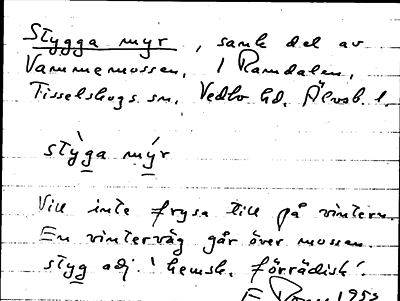 Stygga myr, sank del av
Vammemossen, i Ramdalen,
Tisselskogs sn, Vedbo hd, Älvsb. l.
stỳga mýr
Vill inte frysa till på vintern.
En vinterväg går över mossen.
styg adj. 'hemsk, förrädisk'.
1953